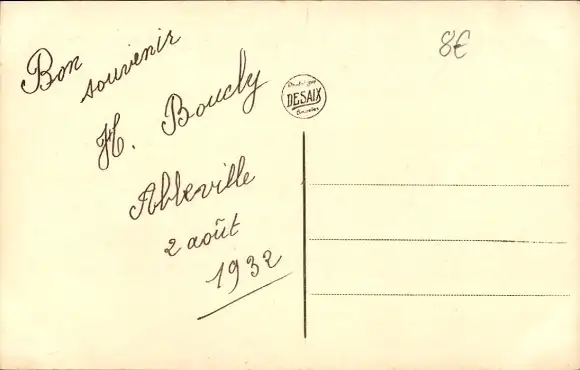 Bon
souvenir
H. Boucly
Abbeville
2 août
1932
8€
DESAIX
Bruxelles